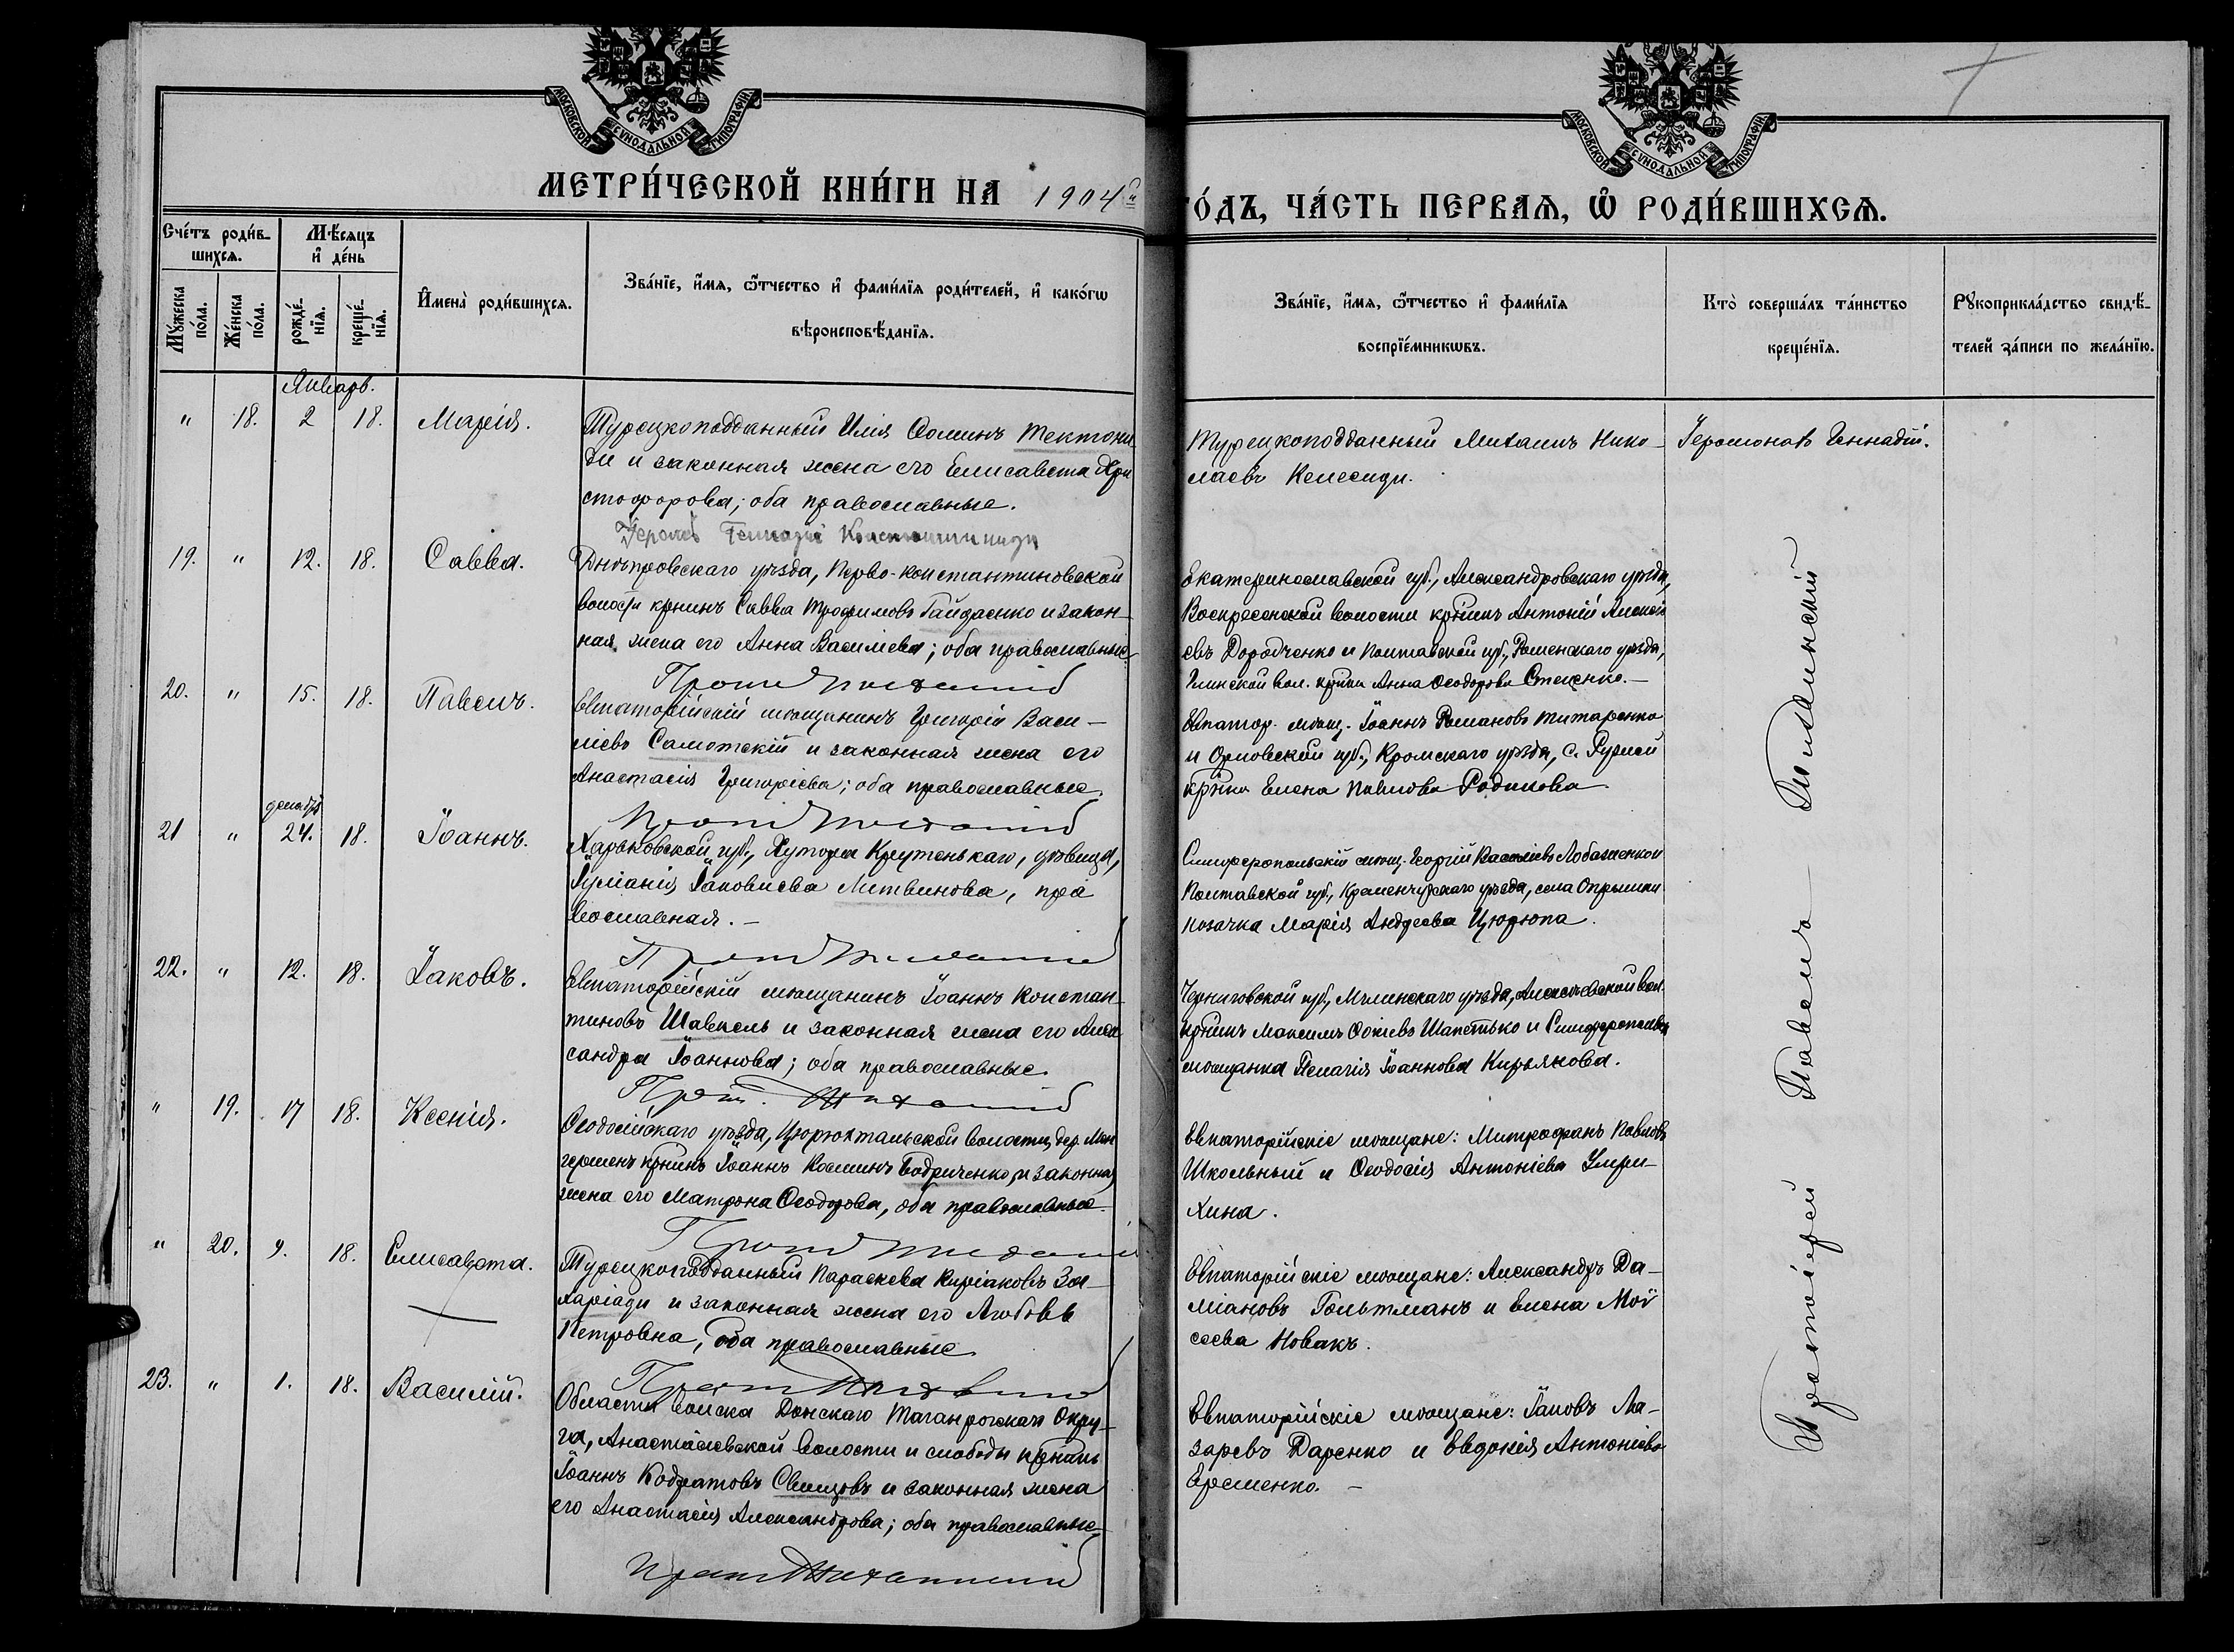 МОСКОВСКОЙ СУНОДАЛЬНОЙ ТИПОГРАФІИ
МОСКОВСКОЙ СУНОДАЛЬНОЙ ТИПОГРАФІИ
МЕТРИ́ЧЕСКОЙ КНИ́ГИ НА 1904й
ГО́ДЪ, ЧА́СТЬ ПЕРВАѦ, Ѡ҆ РОДИ́ВШИХСѦ.
Сче́тъ роди́в-
шихсѧ.
Мѣ́сѧцъ
и҆ де́нь
Мꙋ́жеска
по́ла.
Же́нска
по́ла.
рожде́-
нїѧ.
креще́-
нїѧ.
И҆мена̀ роди́вшихсѧ.
Зва́нїе, и҆́мѧ, ѻ҆́тчество и҆ фами́лїѧ роди́телей, и҆ како́гѡ
вѣроисповѣ́данїѧ.
Зва́нїе, и҆́мѧ, ѻ҆́тчество и҆ фами́лїѧ
воспрїе́мникѡвъ.
Кто̀ соверша́лъ та́инство
креще́нїѧ.
Рꙋкоприкла́дство свидѣ́-
телей за́писи по жела́нїю.
Январь.
" 18. 2 18. Марія.
Турецкоподданный Илія Ѳоминъ Тектони
ди и законная жена его Елисавета Хри
стофорова; оба православные.
Турецкоподданный Михаилъ Нико-
лаевъ Келесиди.
Іеромонахъ Геннадій.
19. " 12. 18. Савва.
Днѣпровскаго уѣзда, Перво-константиновской
волости крнинъ Савва Трофимовъ Гайдаенко и закон-
ная жена его Анна Василіева; оба православные.
Екатеринославской губ., Александровскаго уѣзда,
Воскресенской волости крнинъ Антоній Алексѣ
евъ Дородченко и Полтавской губ., Роменскаго уѣзда,
Глинской вол. крнка Анна Ѳеодорова Стеценко.-
20. " 15. 18. Павелъ.
Евпаторійскій мѣщанинъ Григорій Васи-
ліевъ Самотскій и законная жена его
Анастасія Григоріева; оба православные.
Евпатор. мѣщ. Іоаннъ Романовъ Титаренко
и Орловской губ., Кромскаго уѣзда, с.
крнка Елена Павлова Родикова
декабря
21 " 24. 18. Іоаннъ.
Харьковской губ., Хутора Крутенькаго, дѣвица,
Іуліанія Іаковлева Литвинова, пра
вославная.-
Симферопольскій мѣщ. Георгій Василіевъ
Полтавской губ., Кременчугскаго уѣзда, села Опрышки
козачка Марія Андреева Цюрюпа.
22. " 12. 18. Іаковъ.
Евпаторійскій мѣщанинъ Іоаннъ Констан-
тиновъ Шавкель и законная жена его Алек
сандра Іоаннова; оба православные.
Черниговской губ., Мглинскаго уѣзда, Алексѣевской вол.
крнинъ Максимъ Шапетько и Симферопольск
мѣщанка Пелагія Іоаннова Кирьякова.
" 19. 17 18. Ксенія.
Ѳеодосійскаго уѣзда, Цюрюхтальской волости, дер. Мен
герменъ крнинъ Іоаннъ Косминъ Бодриченко, и законная
жена его Матрона Ѳеодорова, оба православные.
Евпаторійскіе мѣщане: Митрофанъ Павловъ
Школьный и Ѳеодосія Антоніева
хина.
" 20. 9. 18. Елисавета.
Турецкоподданный Параскева Киріаковъ За-
харіади и законная жена его Любовь
Петровна, оба православные
Евпаторійскіе мѣщане: Александръ Да-
міановъ Гольтманъ и Елена Мои
сеева Новакъ.
23. " 1. 18. Василій.
Области Войска Донскаго Таганрогскаго Окру-
га, Анастасіевской волости и слободы крнинъ
Іоаннъ Кодратовъ Свинцовъ и законная жена
его Анастасія Александрова; оба православные.
Евпаторійскіе мѣщане: Іаковъ Ла-
заревъ Даренко и Евдокія Антоніева
Еременко. -
Протоіерей Павелъ Тиханскій